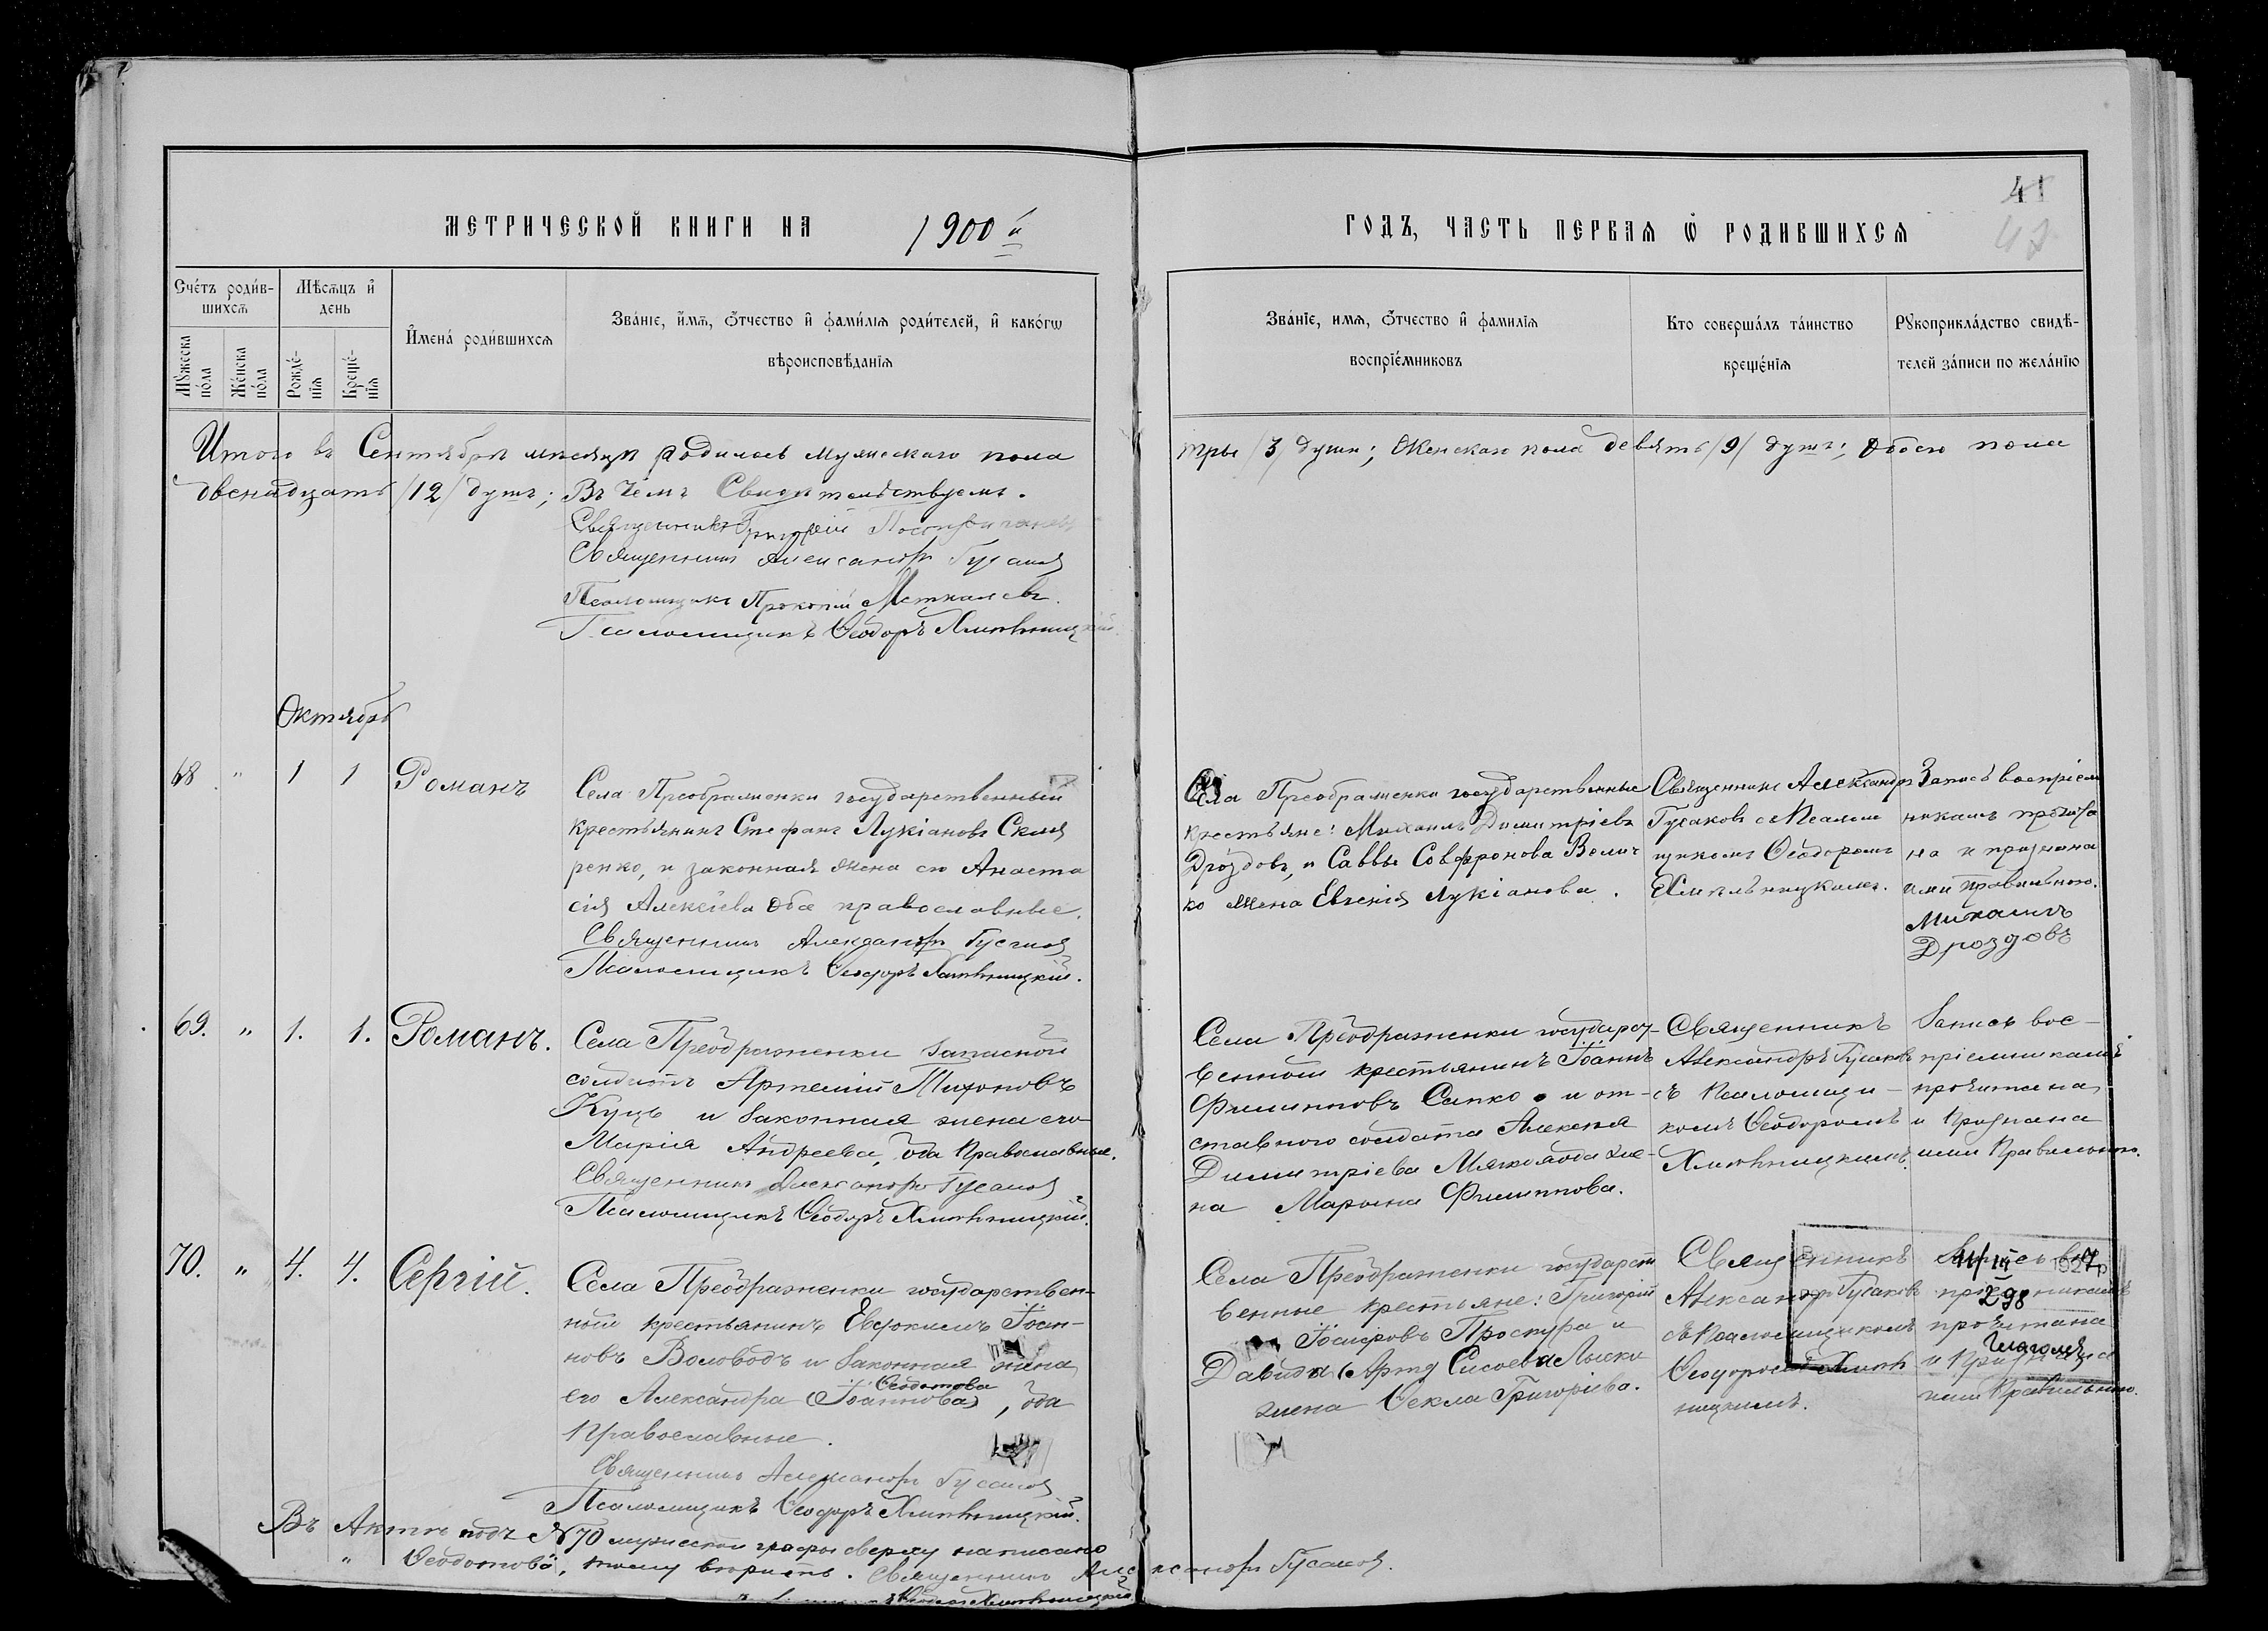 41
МЕТРИЧЕСКОЙ КНИГИ НА 1900й
ГОДЪ, ЧАСТЬ ПЕРВАЯ Ѿ РОДИВШИХСЯ
47
Счетъ родившихся
Мѣсяцъ и день
Имена родившихся
Званіе, имя, отчество и фамилія родителей, и какого
вѣроисповѣданія
Мужеска пола
Женска пола
Рожденія
Крещенія
Званіе, имя, отчество и фамилія
воспріемниковъ
Кто совершалъ таинство
крещенія
Рукоприкладство свидѣ-
телей записи по желанію
Итого въ Сентябрѣ мѣсяцѣ родилось мужескаго пола
три /3/ души; Женскаго пола девять /9/ душъ; Обоего пола
двенадцать /12/ душъ; Въ чемъ Свидѣтельствуемъ.
Священникъ Григорій
Священникъ Александръ Гусаковъ
Псаломщикъ Прокопій
Псаломщикъ Ѳеодоръ Хмѣльницкій.
Октябрь
68 " 1 1 Романъ
Села Преображенки государственный
крестьянинъ Стефанъ Лукіановъ Скля
ренко, и законная жена его Анаста
сія Алексіева оба православные.
Священникъ Александръ Гусаковъ
Псаломщикъ Ѳеодоръ Хмѣльницкій.
Села Преображенки государственные
крестьяне: Михаилъ Димитріевъ
Дроздовъ, и Саввы Софронова Велич
ко жена Евгенія Лукіанова.
Священникъ Александръ
Гусаковъ съ Псалом
щикомъ Ѳеодоромъ
Хмѣльницкимъ.
Запись воспріем
никамъ прочита
на и признана
ими правильною.
Михаилъ
Дроздовъ
69. " 1. 1. Романъ.
Села Преображенки запасной
солдатъ Артемій Тихоновъ
Куцъ и законная жена его
Марія Андреева, оба Православные.
Священникъ Александръ Гусаковъ
Псаломщикъ Ѳеодоръ Хмѣльницкій.
Села Преображенки государст-
венный крестьянинъ Іоаннъ
Филипповъ Сапко и от-
ставного солдата Алексія
Димитріева жe-
на Марѳина Филиппова.
Священникъ
Александръ Гусаковъ
съ Псаломщи-
комъ Ѳеодоромъ
Хмѣльницкимъ.
Запись вос-
пріемникамъ
прочитана
и Признана
ими Правильною.
70. " 4. 4. Сергій.
Села Преображенки государствен-
ный крестьянинъ Евдокимъ Іоан-
новъ Воловодъ и законная жена
Ѳеодотова
его Александра (Іоаннова), оба
Православные.
Священникъ Александръ Гусаковъ
Псаломщикъ Ѳеодоръ Хмѣльницкій.
Села Преображенки государст
венные крестьяне: Григорій
Іосифовъ Проскура и
Давида Сисоева Лыски
жена Ѳекла Григоріева.
Священникъ
Александръ Гусаковъ
съ Псаломщикомъ
Ѳеодоромъ Хмѣль
ницкимъ.
Запись вос
пріемникамъ
прочитана
и Признана
ими Правильною.
298
Въ Актѣ подъ № 70 мужеской графы сверху написано
" Ѳеодотова, тому вѣрить. Священникъ Александръ Гусаковъ.
Ѳеодоръ Хмѣльницкій